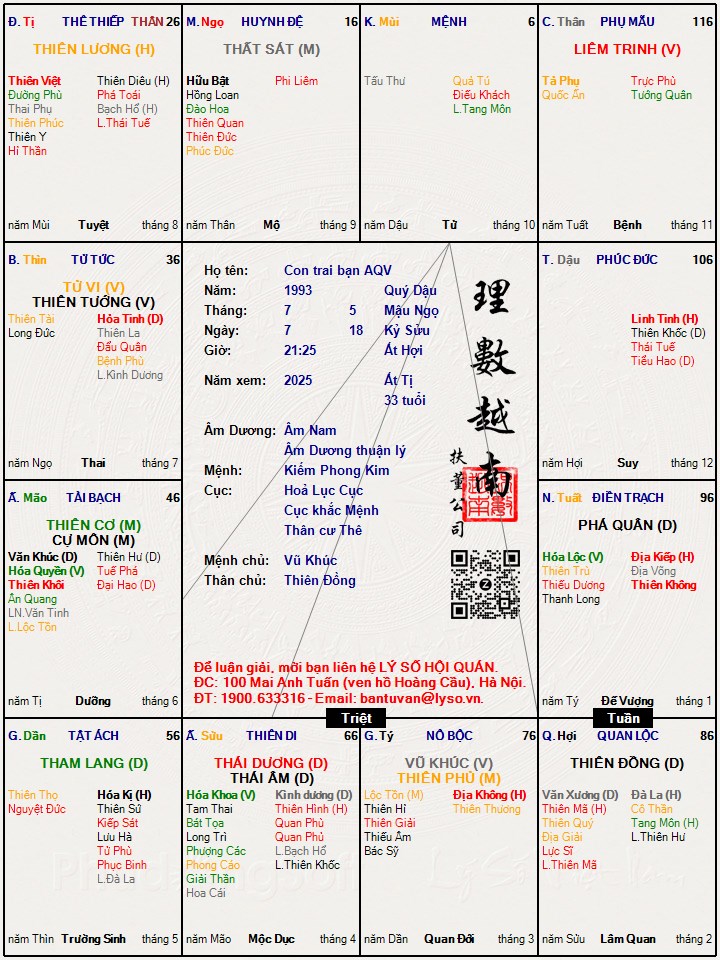 Đ. Tị THÊ THIẾP THÂN 26
THIÊN LƯƠNG (H)
Thiên Việt Thiên Diêu (H)
Đường Phù Phá Toái
Thai Phụ Bạch Hổ (H)
Thiên Phúc L.Thái Tuế
Thiên Y
Hỉ Thần
năm Mùi Tuyệt tháng 8
M. Ngọ HUYNH ĐỆ 16
THẤT SÁT (M)
Hữu Bật Phi Liêm
Hồng Loan
Đào Hoa
Thiên Quan
Thiên Đức
Phúc Đức
năm Thân Mộ tháng 9
K. Mùi MỆNH 6
Tấu Thư Quả Tú
Điếu Khách
L.Tang Môn
năm Dậu Tử tháng 10
C. Thân PHỤ MẪU 116
LIÊM TRINH (V)
Tả Phụ Trực Phù
Quốc Ấn Tướng Quân
năm Tuất Bệnh tháng 11
B. Thìn TỬ TỨC 36
TỬ VI (V)
THIÊN TƯỚNG (V)
Thiên Tài Hỏa Tinh (D)
Long Đức Thiên La
Đẩu Quân
Bệnh Phù
L.Kình Dương
năm Ngọ Thai tháng 7
Họ tên: Con trai bạn AQV
Năm: 1993 Quý Dậu
Tháng: 7 5 Mậu Ngọ
Ngày: 7 18 Kỷ Sửu
Giờ: 21:25 Ất Hợi
Năm xem: 2025 Ất Tị
33 tuổi
Âm Dương: Âm Nam
Âm Dương thuận lý
Mệnh: Kiếm Phong Kim
Cục: Hoả Lục Cục
Cục khắc Mệnh
Thân cư Thê
Mệnh chủ: Vũ Khúc
Thân chủ: Thiên Đồng
理數越南
扶董公司
Để luận giải, mời bạn liên hệ LÝ SỐ HỘI QUÁN.
ĐC: 100 Mai Anh Tuấn (ven hồ Hoàng Cầu), Hà Nội.
ĐT: 1900.633316 - Email: bantuvan@lyso.vn.
T. Dậu PHÚC ĐỨC 106
Linh Tinh (H)
Thiên Khốc (D)
Thái Tuế
Tiểu Hao (D)
năm Hợi Suy tháng 12
Ấ. Mão TÀI BẠCH 46
THIÊN CƠ (M)
CỰ MÔN (M)
Văn Khúc (D) Thiên Hư (D)
Hóa Quyền (V) Tuế Phá
Thiên Khôi Đại Hao (D)
Ân Quang
LN.Văn Tinh
L.Lộc Tồn
năm Tị Dưỡng tháng 6
N. Tuất ĐIỀN TRẠCH 96
PHÁ QUÂN (D)
Hóa Lộc (V) Địa Kiếp (H)
Thiên Trù Địa Võng
Thiếu Dương Thiên Không
Thanh Long
năm Tý Đế Vượng tháng 1
Triệt
Tuần
G. Dần TẬT ÁCH 56
THAM LANG (D)
Thiên Thọ Hóa Kị (H)
Nguyệt Đức Thiên Sứ
Kiếp Sát
Lưu Hà
Tử Phù
Phục Binh
L.Đà La
năm Thìn Trường Sinh tháng 5
Ấ. Sửu THIÊN DI 66
THÁI DƯƠNG (D)
THÁI ÂM (D)
Hóa Khoa (V) Kình dương (D)
Tam Thai Thiên Hình (H)
Bát Tọa Quan Phù
Long Trì Quan Phủ
Phượng Các L.Bạch Hổ
Phong Cáo L.Thiên Khốc
Giải Thần
Hoa Cái
năm Mão Mộc Dục tháng 4
G. Tý NÔ BỘC 76
VŨ KHÚC (V)
THIÊN PHỦ (M)
Lộc Tồn (M) Địa Không (H)
Thiên Hỉ Thiên Thương
Thiên Giải
Thiếu Âm
Bác Sỹ
năm Dần Quan Đới tháng 3
Q. Hợi QUAN LỘC 86
THIÊN ĐỒNG (D)
Văn Xương (D) Đà La (H)
Thiên Mã (H) Cô Thần
Thiên Quý Tang Môn (H)
Địa Giải L.Thiên Hư
Lực Sĩ
L.Thiên Mã
năm Sửu Lâm Quan tháng 2